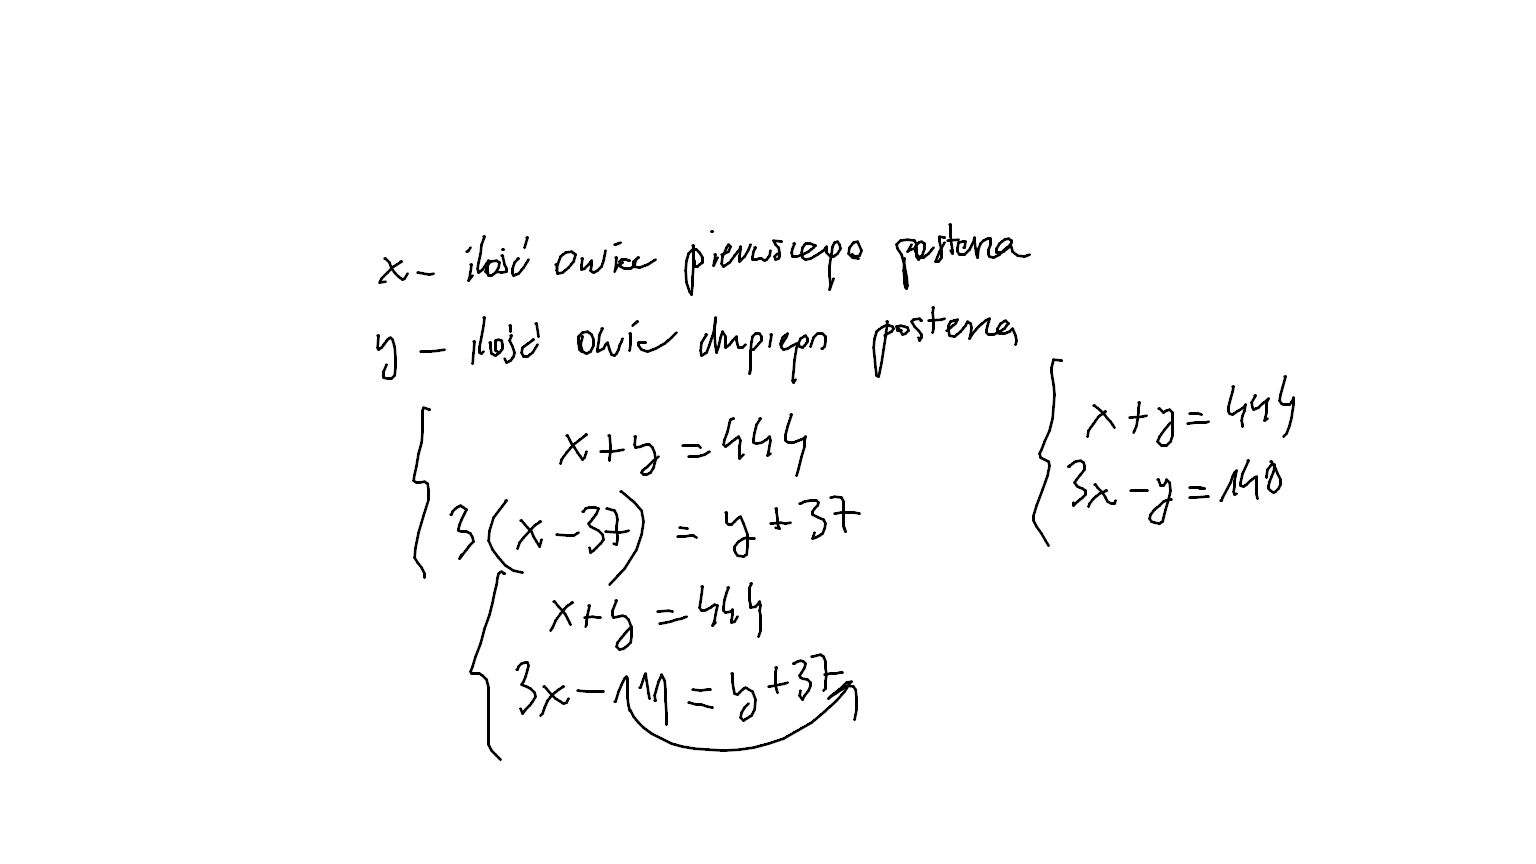 x - ilość owiec pierwszego pasterza
y - ilość owiec drugiego pasterza
x + y = 444
3(x - 37) = y + 37
x + y = 444
3x - 111 = y + 37
x + y = 444
3x - y = 148